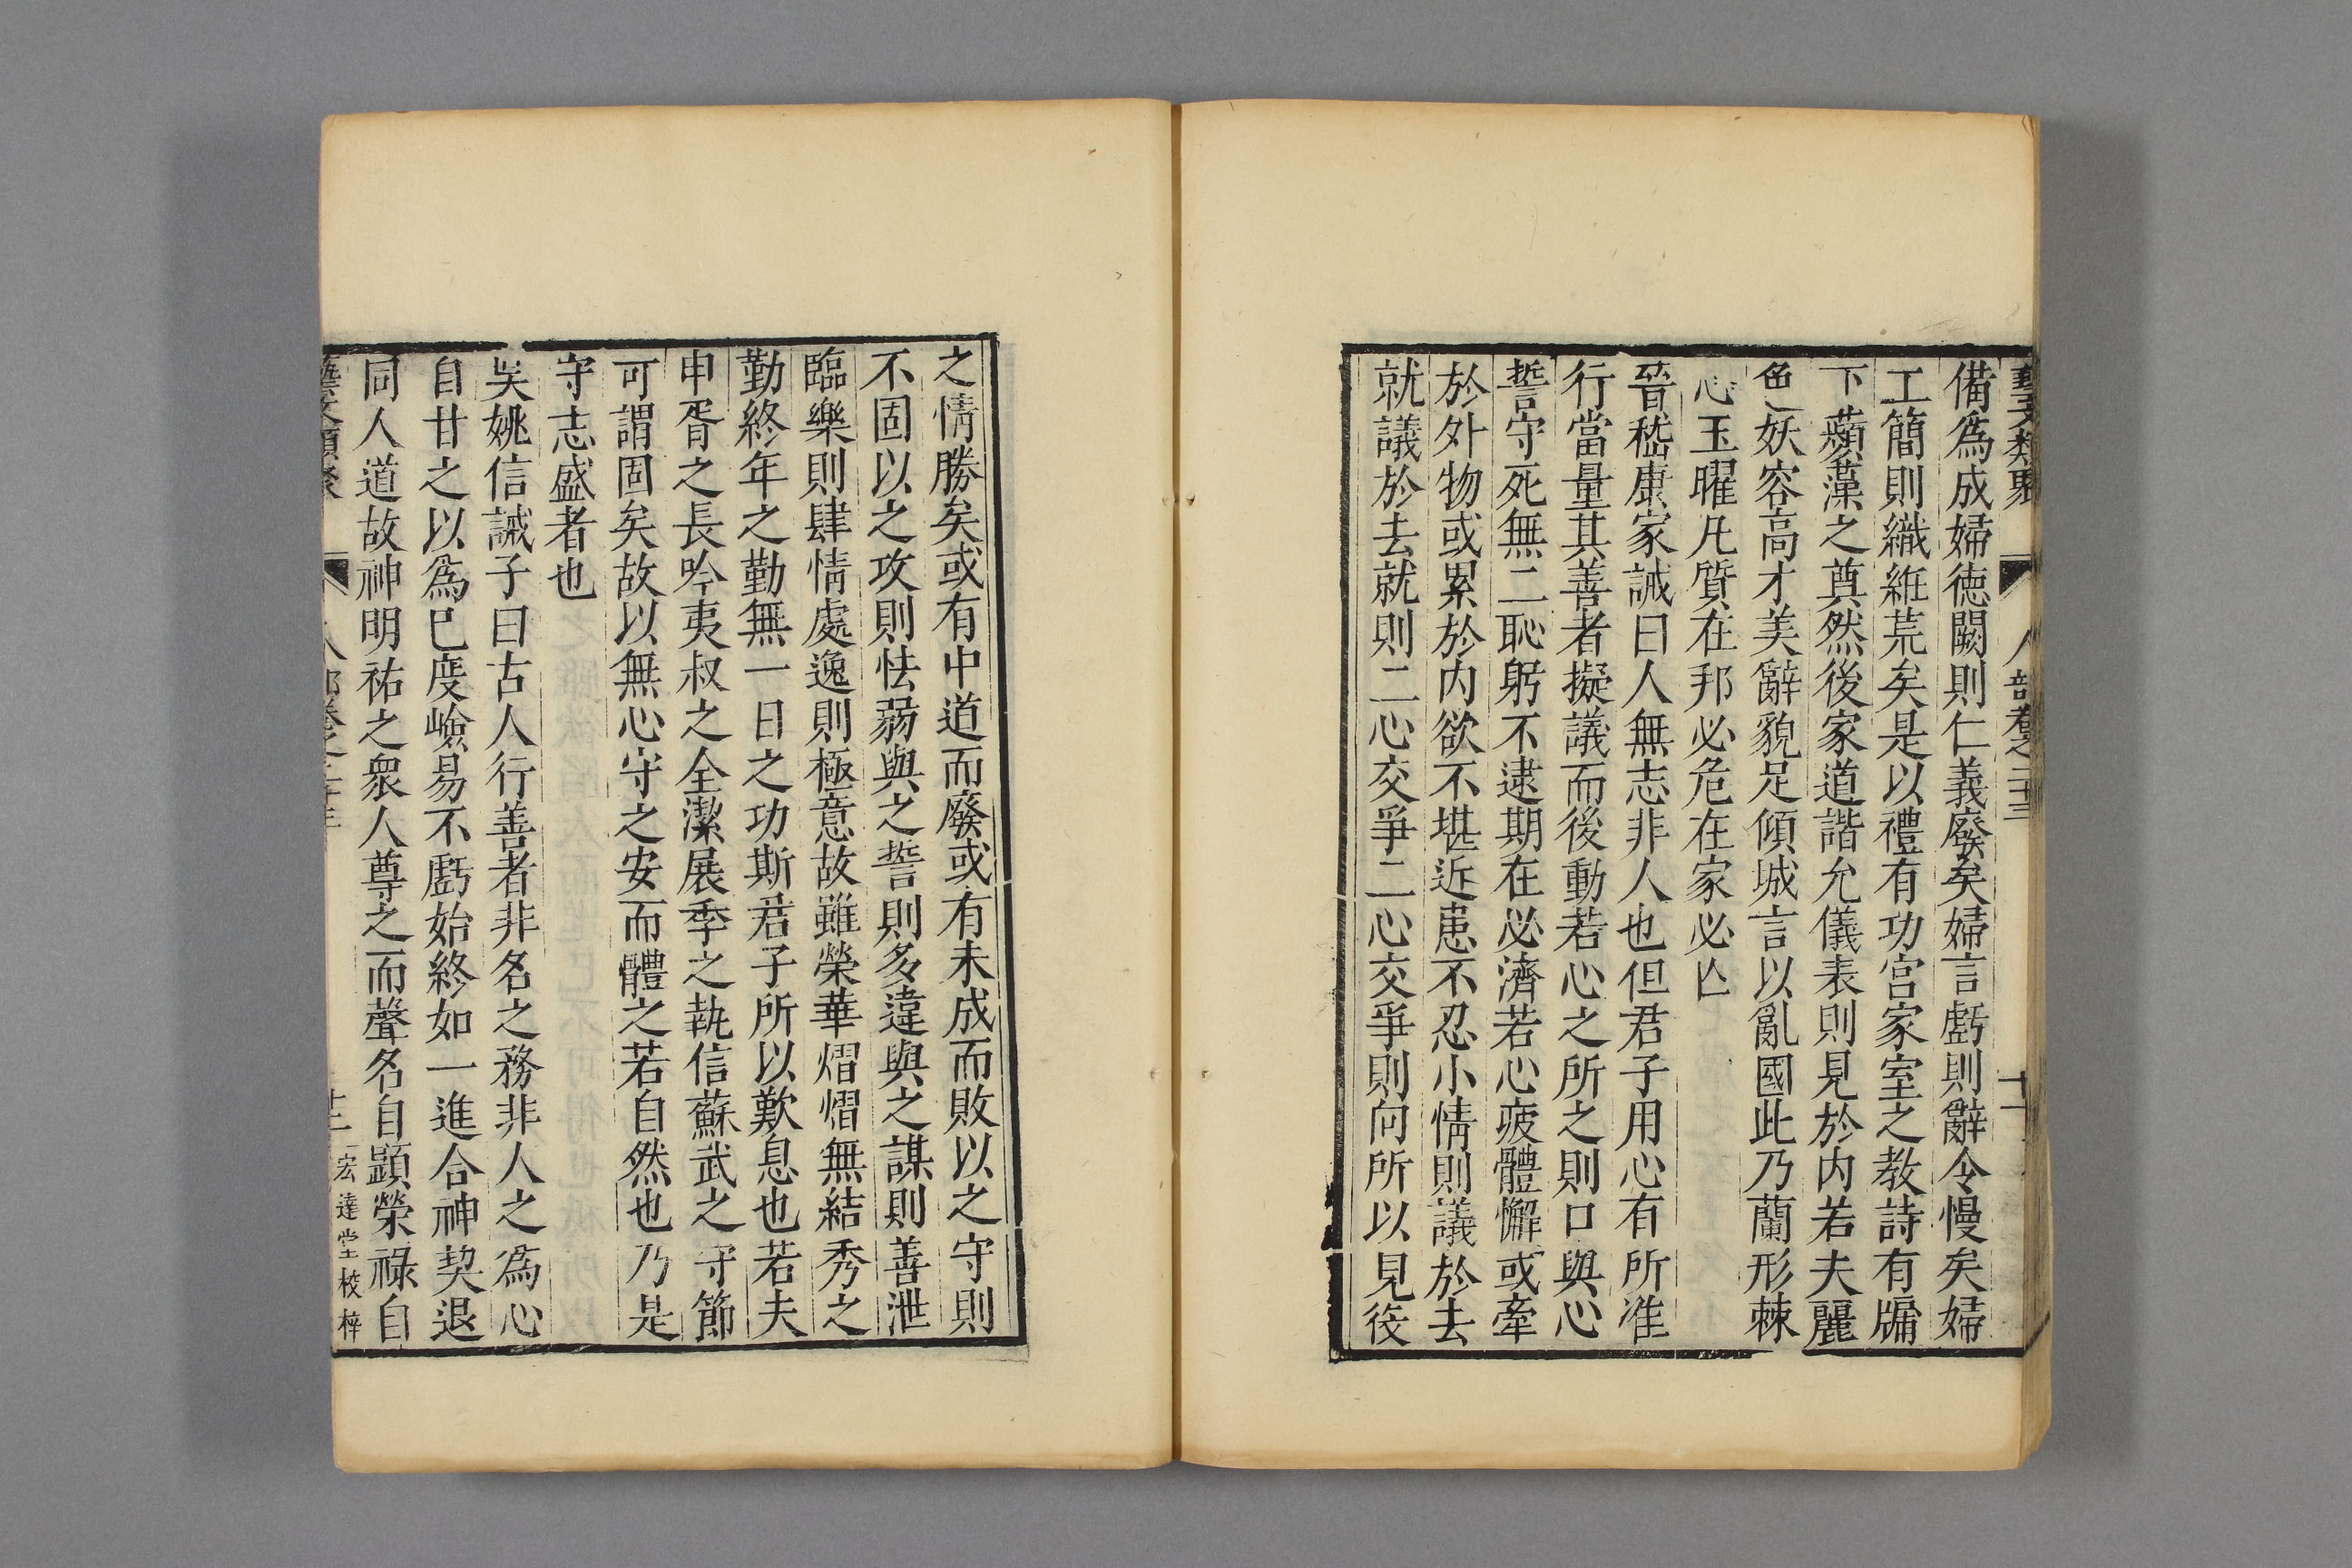 藝文類聚 人部卷之二十三 十二
備爲成婦德闕則仁義廢矣婦言虧則辭令慢矣婦
工簡則織紝荒矣是以禮有功宫家室之教詩有牖
下蘋藻之奠然後家道諧允儀表則見於内若夫麗
色妖容高才美辭貌足傾城言以亂國此乃蘭形棘
心玉曜凡質在邦必危在家必亾
晉嵇康家誡曰人無志非人也但君子用心有所准
行當量其善者擬議而後動若心之所之則口與心
誓守死無二恥躬不逮期在必濟若心疲體懈或牽
於外物或累於内欲不堪近患不忍小情則議於去
就議於去就則二心交爭二心交爭則向所以見役
之情勝矣或有中道而廢或有未成而敗以之守則
不固以之攻則怯弱與之誓則多違與之謀則善泄
臨樂則肆情處逸則極意故雖榮華熠熠無結秀之
勤終年之勤無一日之功斯君子所以歎息也若夫
申胥之長吟夷叔之全潔展季之執信蘇武之守節
可謂固矣故以無心守之安而體之若自然也乃是
守志盛者也
吴姚信誡子曰古人行善者非名之務非人之爲心
自甘之以爲已度嶮易不虧始終如一進合神契退
同人道故神明祐之衆人尊之而聲名自顯榮祿自
藝文類聚 人部卷之二十三 十二 宏達堂校梓